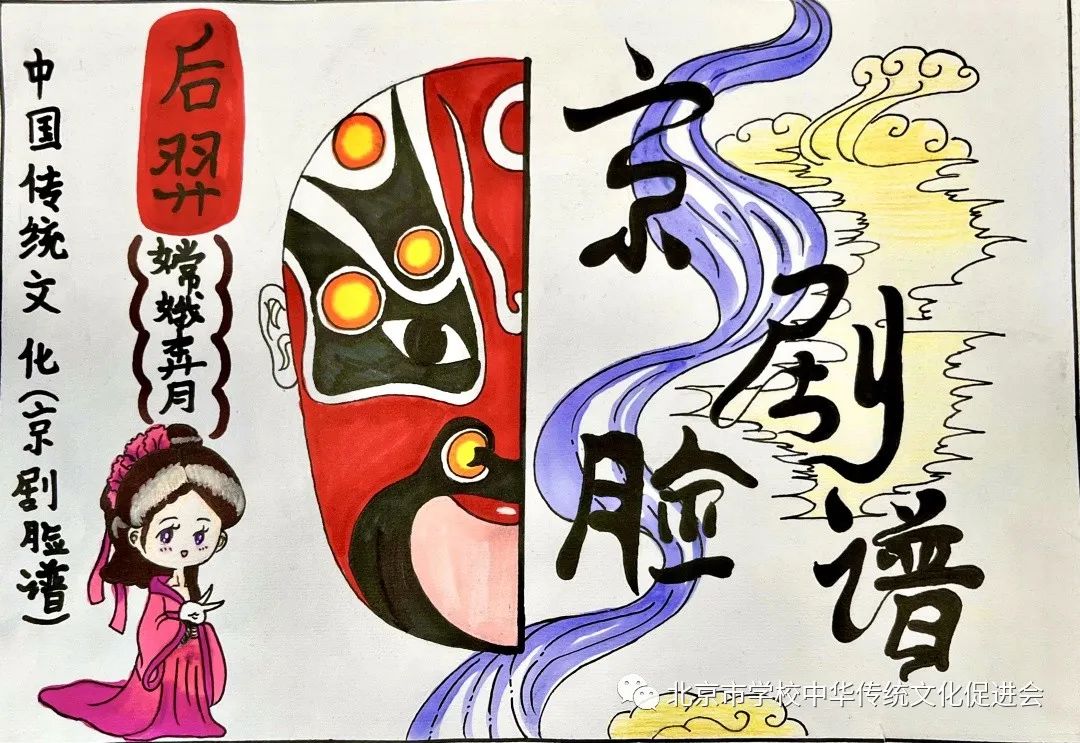 中国传统文化(京剧脸谱)
后羿
(嫦娥奔月)
京剧
脸谱
北京市学校中华传统文化促进会